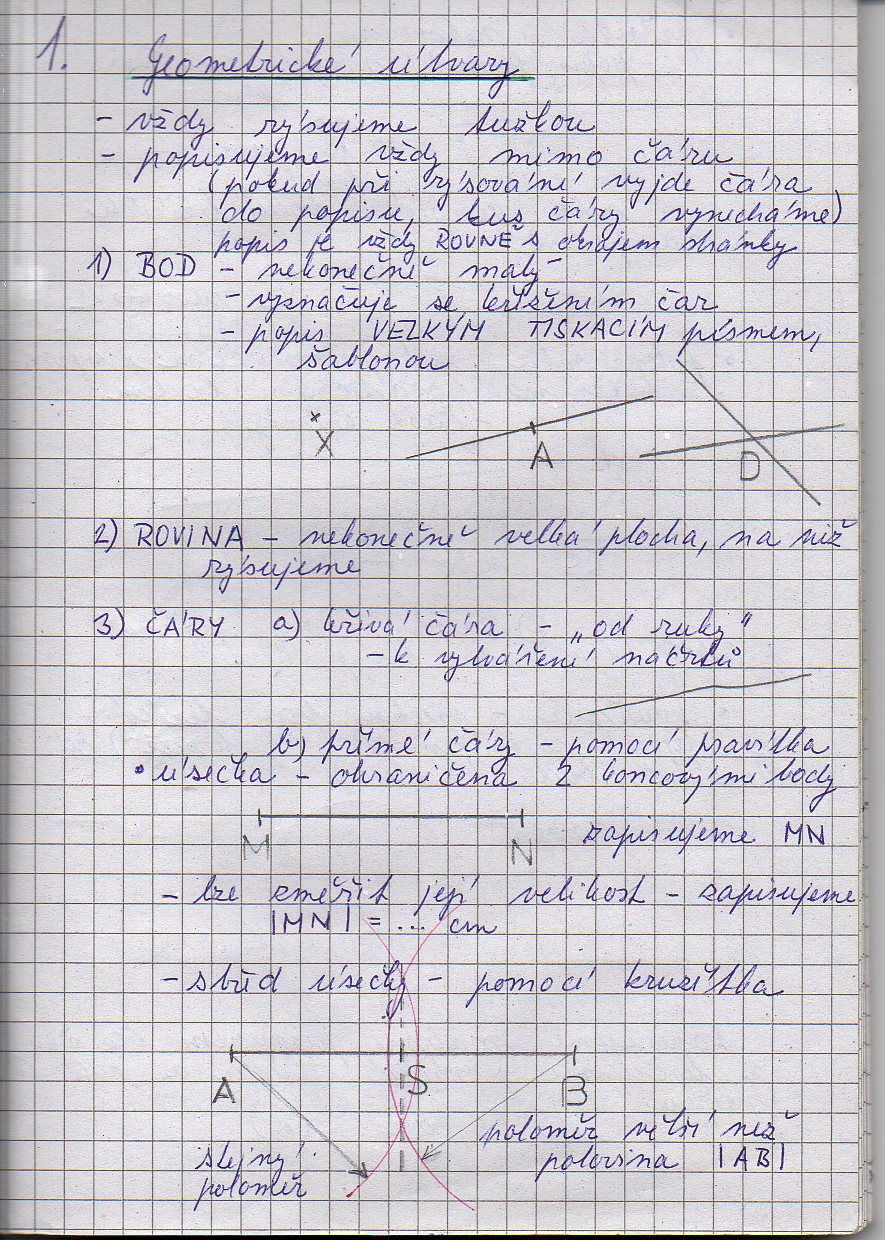 1. Geometrické útvary
- vždy rýsujeme tužkou
- popisujeme vždy mimo čáru
(pokud při rýsování vyjde čára
do popisu, kus čáry vynecháme)
popis je vždy ROVNĚ s okrajem stránky
1) BOD - nekonečně malý
- vyznačuje se křížením čar
- popis VELKÝM TISKACÍM písmem,
šablonou
X
A
D
2) ROVINA - nekonečně velká plocha, na níž
rýsujeme
3) ČÁRY a) křivá čára - „od ruky"
- k vytváření náčrtků
b) přímé čáry - pomocí pravítka
• úsečka - ohraničena 2 koncovými body
M N zapisujeme MN
- lze změřit její velikost - zapisujeme
|MN| = ... cm
- střed úsečky - pomocí kružítka
A S B
stejný
poloměr
poloměr větší než
polovina |AB|